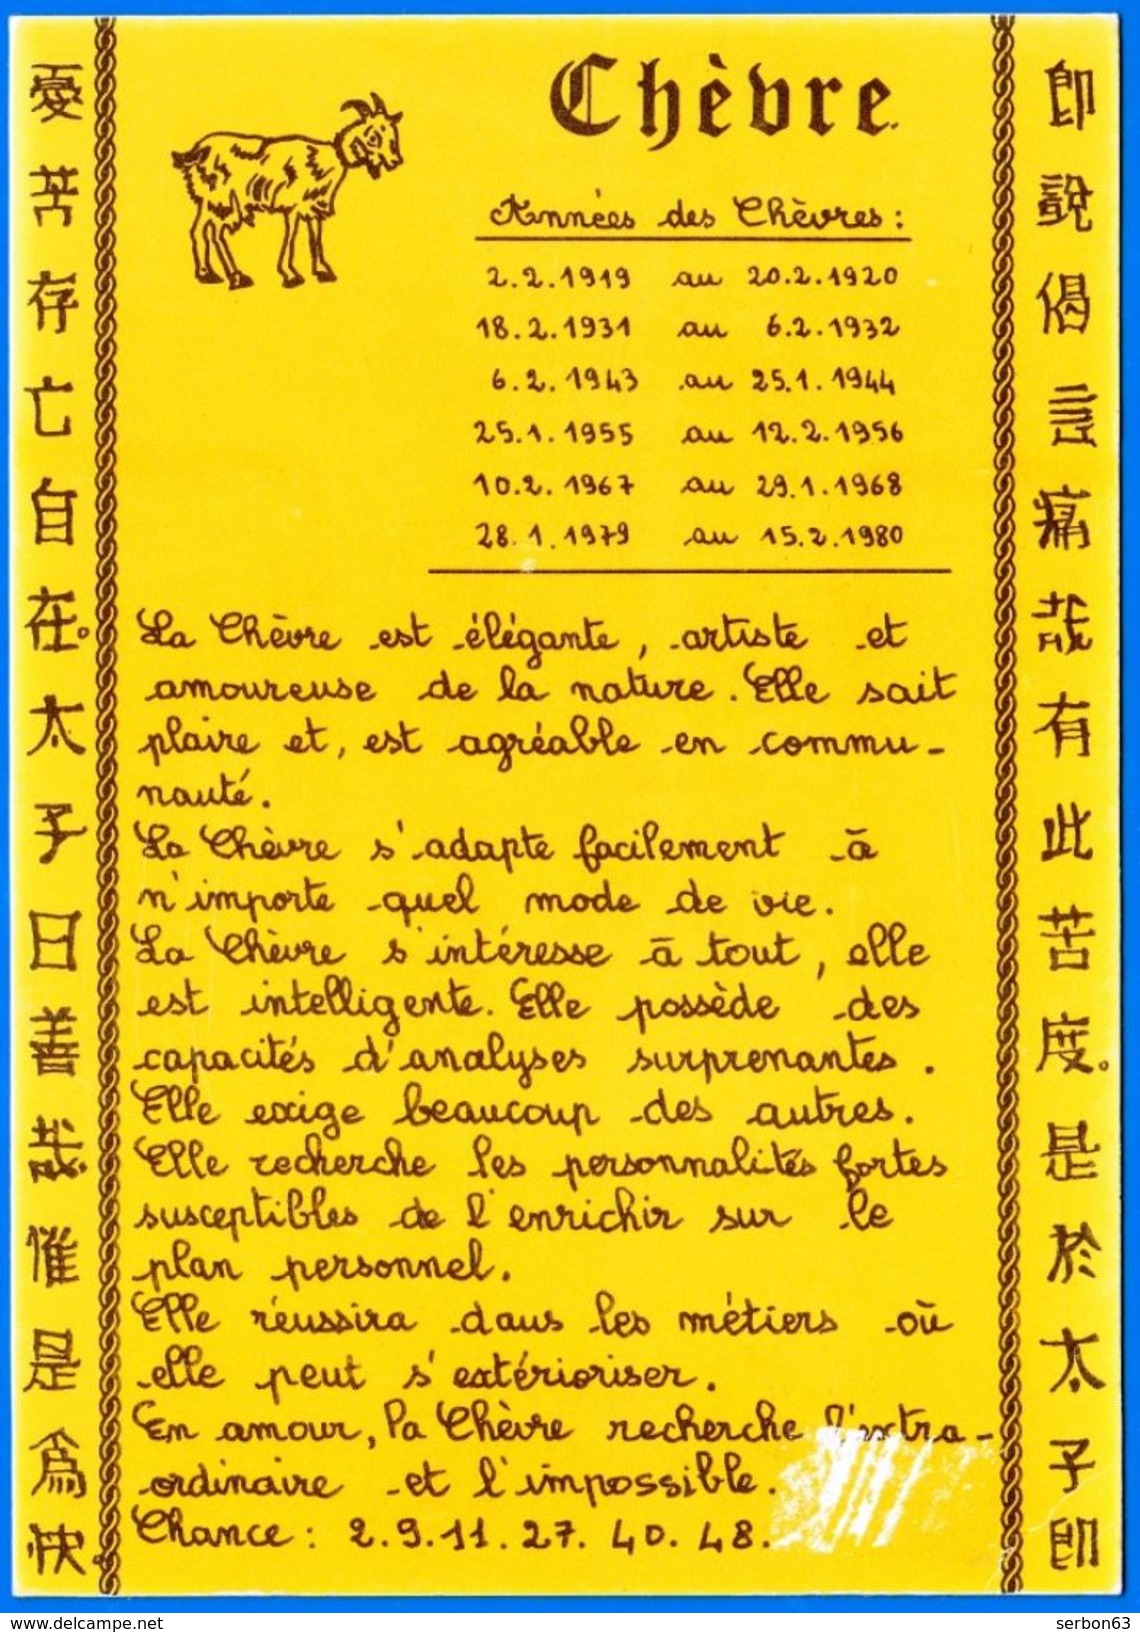 Chèvre.
Années des Chèvres :
2.2.1919 au 20.2.1920
18.2.1931 au 6.2.1932
6.2.1943 au 25.1.1944
25.1.1955 au 12.2.1956
10.2.1967 au 29.1.1968
28.1.1979 au 15.2.1980
La Chèvre est élégante, artiste et
amoureuse de la nature. Elle sait
plaire et, est agréable en commu-
nauté.
La Chèvre s'adapte facilement à
n'importe quel mode de vie.
La Chèvre s'intéresse à tout, elle
est intelligente. Elle possède des
capacités d'analyses surprenantes.
Elle exige beaucoup des autres.
Elle recherche les personnalités fortes
susceptibles de l'enrichir sur le
plan personnel.
Elle réussira dans les métiers où
elle peut s'extérioriser.
En amour, la Chèvre recherche l'extra-
ordinaire et l'impossible.
Chance : 2.9.11.27.40.48.
即說偈言痛哉有此苦度。是於太子即
憂苦存亡自在。太子日善哉催是為快。
www.delcampe.net
serbon63